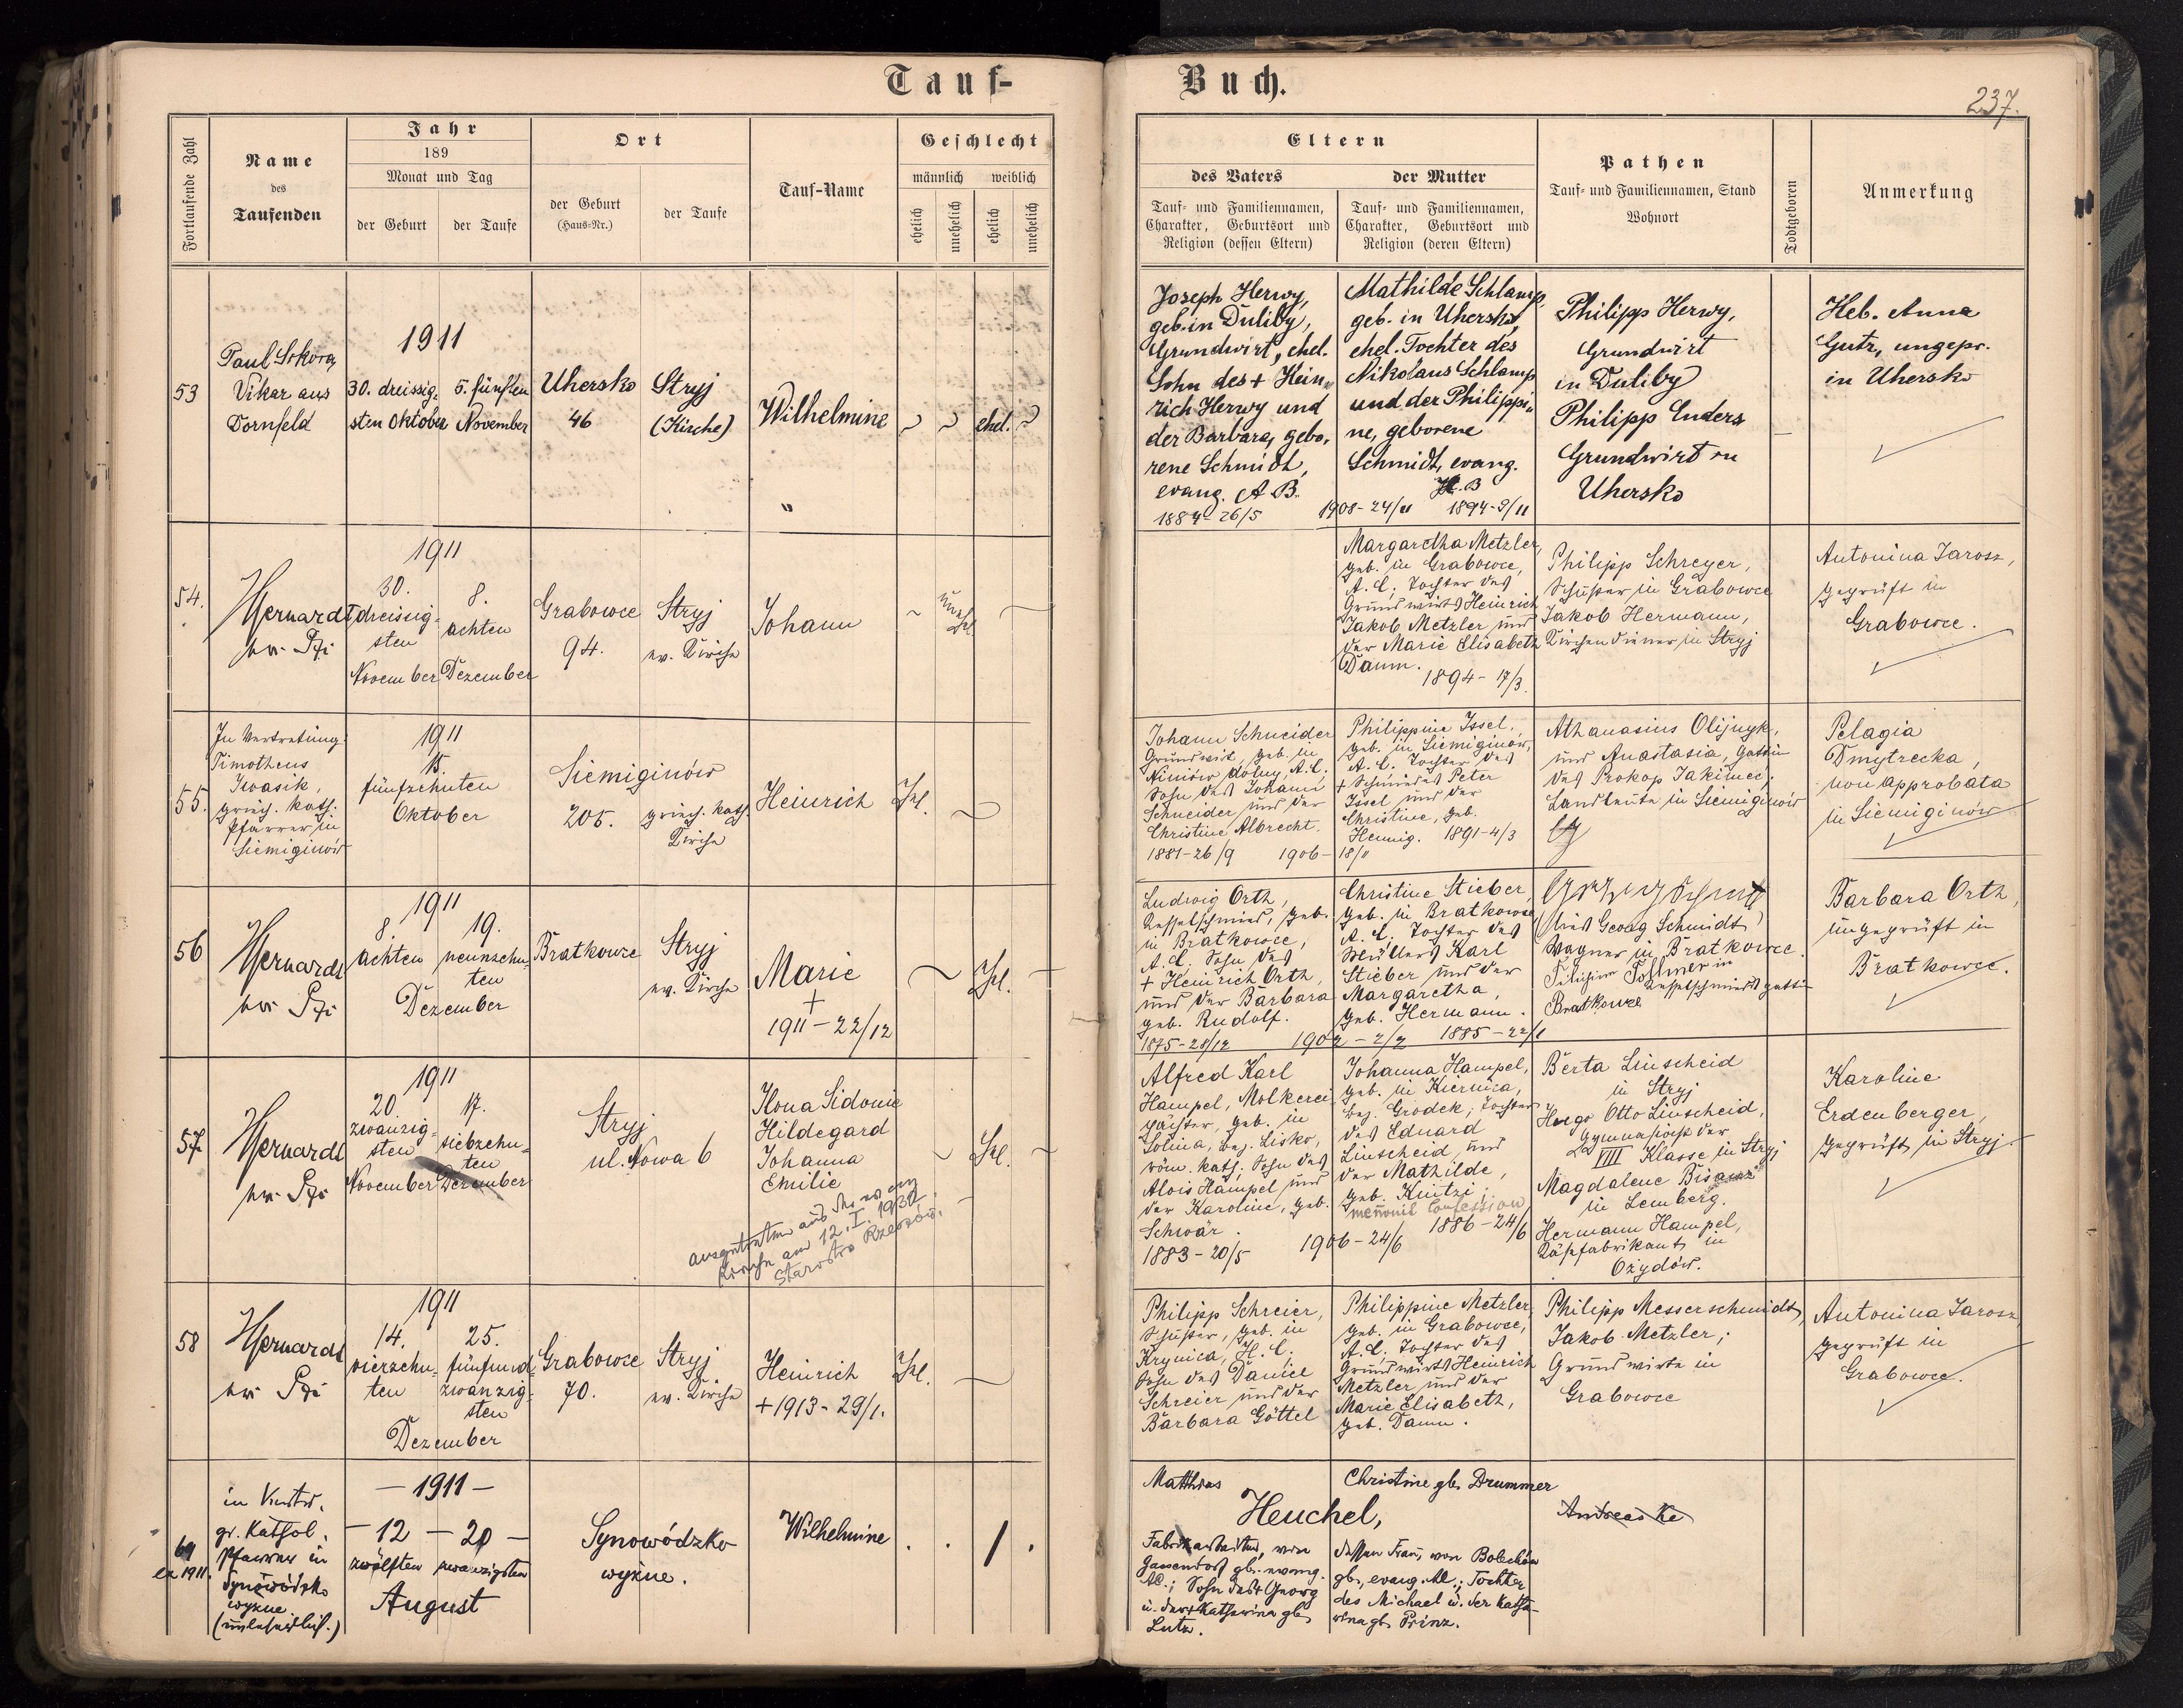 Tauf-
Buch.
237.
Fortlaufende Zahl
Name
des
Taufenden
Jahr
189
Monat und Tag
der Geburt
der Taufe
Ort
der Geburt
(Haus-Nr.)
der Taufe
Tauf-Name
Geschlecht
männlich weiblich
ehelich
unehelich
ehelich
unehelich
Eltern
des Vaters
Tauf- und Familiennamen,
Charakter, Geburtsort und
Religion (dessen Eltern)
der Mutter
Tauf- und Familiennamen,
Charakter, Geburtsort und
Religion (deren Eltern)
Pathen
Tauf- und Familiennamen, Stand
Wohnort
Todtgeboren
Anmerkung
53
Paul Sikora,
Vikar aus
Dornfeld
1911
30. dreissig-
sten Oktober
5. fünften
November
Uhersko
46
Stryj
(Kirche)
Wilhelmine
ehel.
Joseph Herwy,
geb. in Duliby,
Grundwirt, ehel.
Sohn des + Hein-
rich Herwy und
der Barbara, gebo-
rene Schmidt,
evang. A. B.
1884-26/5
1908-24/11
Mathilde Schlamp,
geb. in Uhersko,
ehel. Tochter des
Nikolaus Schlamp
und der Philippi-
ne, geborene
Schmidt, evang.
H. B
1894-9/11
Philipp Herwy,
Grundwirt
in Duliby
Philipp Enders
Grundwirt in
Uhersko
Heb. Anna
Gutz, ungepr.
in Uhersko
54.
1911
30.
dreissig-
sten
November
8.
achten
Dezember
Grabowce
94.
Stryj
ev. Kirche
Johann
unehl.
Margaretha Metzler,
geb. in Grabowce,
A. C.; Tochter des
Grundwirts Heinrich
Jakob Metzler und
der Marie Elisabeth
Damm.
1894-17/3.
Philipp Schreyer,
Schuster in Grabowce
Jakob Hermann,
Kirchendiener in Stryj
Antonina Jarosz,
geprüft in
Grabowce.
55.
In Vertretung:
Timotheus
Iwasik,
griech. kath.
Pfarrer in
Siemiginów
1911
15.
fünfzehnten
Oktober
Siemiginów
205.
griech. kath.
Kirche
Heinrich
Ehl.
Johann Schneider
Grundwirt, geb. in
Niniów dolny, A.C.;
Sohn des Johann
Schneider und der
Christine Albrecht.
1881-26/9
1906-18/11
Philippine Issel,
geb. in Siemiginów,
A. C. Tochter des
+ Schmiedes Peter
Issel und der
Christine, geb.
Hennig. 1891-4/3
Athanasius Olijnyk,
und Anastasia, Gattin
des Prokop Jakimec;
Landleute in Siemiginów
Pelagia
Dmytrecka,
non approbata
in Siemiginów
56
1911
8.
achten
19.
neunzehn-
ten
Dezember
Bratkowce
Stryj
ev. Kirche
Marie
+
1911-22/12
Ehl.
Ludwig Orth,
Kesselschmied, geb.
in Bratkowce,
A. C. Sohn des
+ Heinrich Orth,
und der Barbara
geb. Rudolf.
1875-28/12
Christine Stieber,
geb. in Bratkowce,
A. C. Tochter des
Müllers Karl
Stieber und der
Margaretha,
geb. Hermann.
1885-22/1
Georg Schmidt
Wagner in Bratkowce.
Kesselschmieds gattin
Bratkowce
Barbara Orth,
ungeprüft in
Bratkowce.
57
1911
20.
zwanzig-
sten
November
17.
siebzehn-
ten
Dezember
Stryj
ul. Nowa 6
Ilona Sidonie
Hildegard
Johanna
Emilie
ausgetreten aus der ev.
Kirche am 12. I. 1932.
Starostwo Rzeszów.
Ehl.
Alfred Karl
Hampel, Molkerei
pächter, geb. in
Solina, bez. Lisko,
röm. kath. Sohn des
Alois Hampel und
der Karoline, geb.
Schwär.
1883-20/5
1906-24/6
Johanna Hampel,
geb. in Kiernica,
bez. Grodek; Tochter
des Eduard
Linscheid und
der Mathilde,
geb. Kintzi;
menonit Confession
1886-24/6
Berta Linscheid
in Stryj
Hugo Otto Linscheid,
Gymnasiast der
VIII Klasse in Stryj
Magdalene Bisanz
in Lemberg.
Hermann Hampel,
Käsefabrikant in
Ożydów.
Karoline
Erdenberger,
geprüft in Stryj
58
1911
14.
vierzehn-
ten
25.
fünfund-
zwanzig-
sten
Dezember
Grabowce
70.
Stryj
ev. Kirche
Heinrich
+ 1913-29/1.
Ehl.
Philipp Schreier,
Schuster, geb. in
Krynica, H. C.
Sohn des Daniel
Schreier und der
Barbara Göttel
Philippine Metzler,
geb. in Grabowce,
A. C. Tochter des
Grundwirts Heinrich
Metzler und der
Marie Elisabeth,
geb. Damm.
Philipp Messerschmidt,
Jakob Metzler;
Grundwirte in
Grabowce
Antonina Jarosz,
geprüft in
Grabowce.
ex 1911.
gr. Kathol.
Pfarrer in
Synowódzko
wyżne
(unleserlich.)
- 1911 -
- 12 - 20 -
zwölften zwanzigsten
August
Synowódzko
wyżne.
Wilhelmine
Matthias
Heuchel,
Fabriksarbeiter, von
Gassendorf gb. evang.
AC.; Sohn des + Georg
u. der + Katharina gb.
Lutz.
Christine gb. Drummer
dessen Frau, von Bolechów
gb., evang. AC.; Tochter
des Michael u. der Katha-
rina gb. Prinz.
Andreas Ke